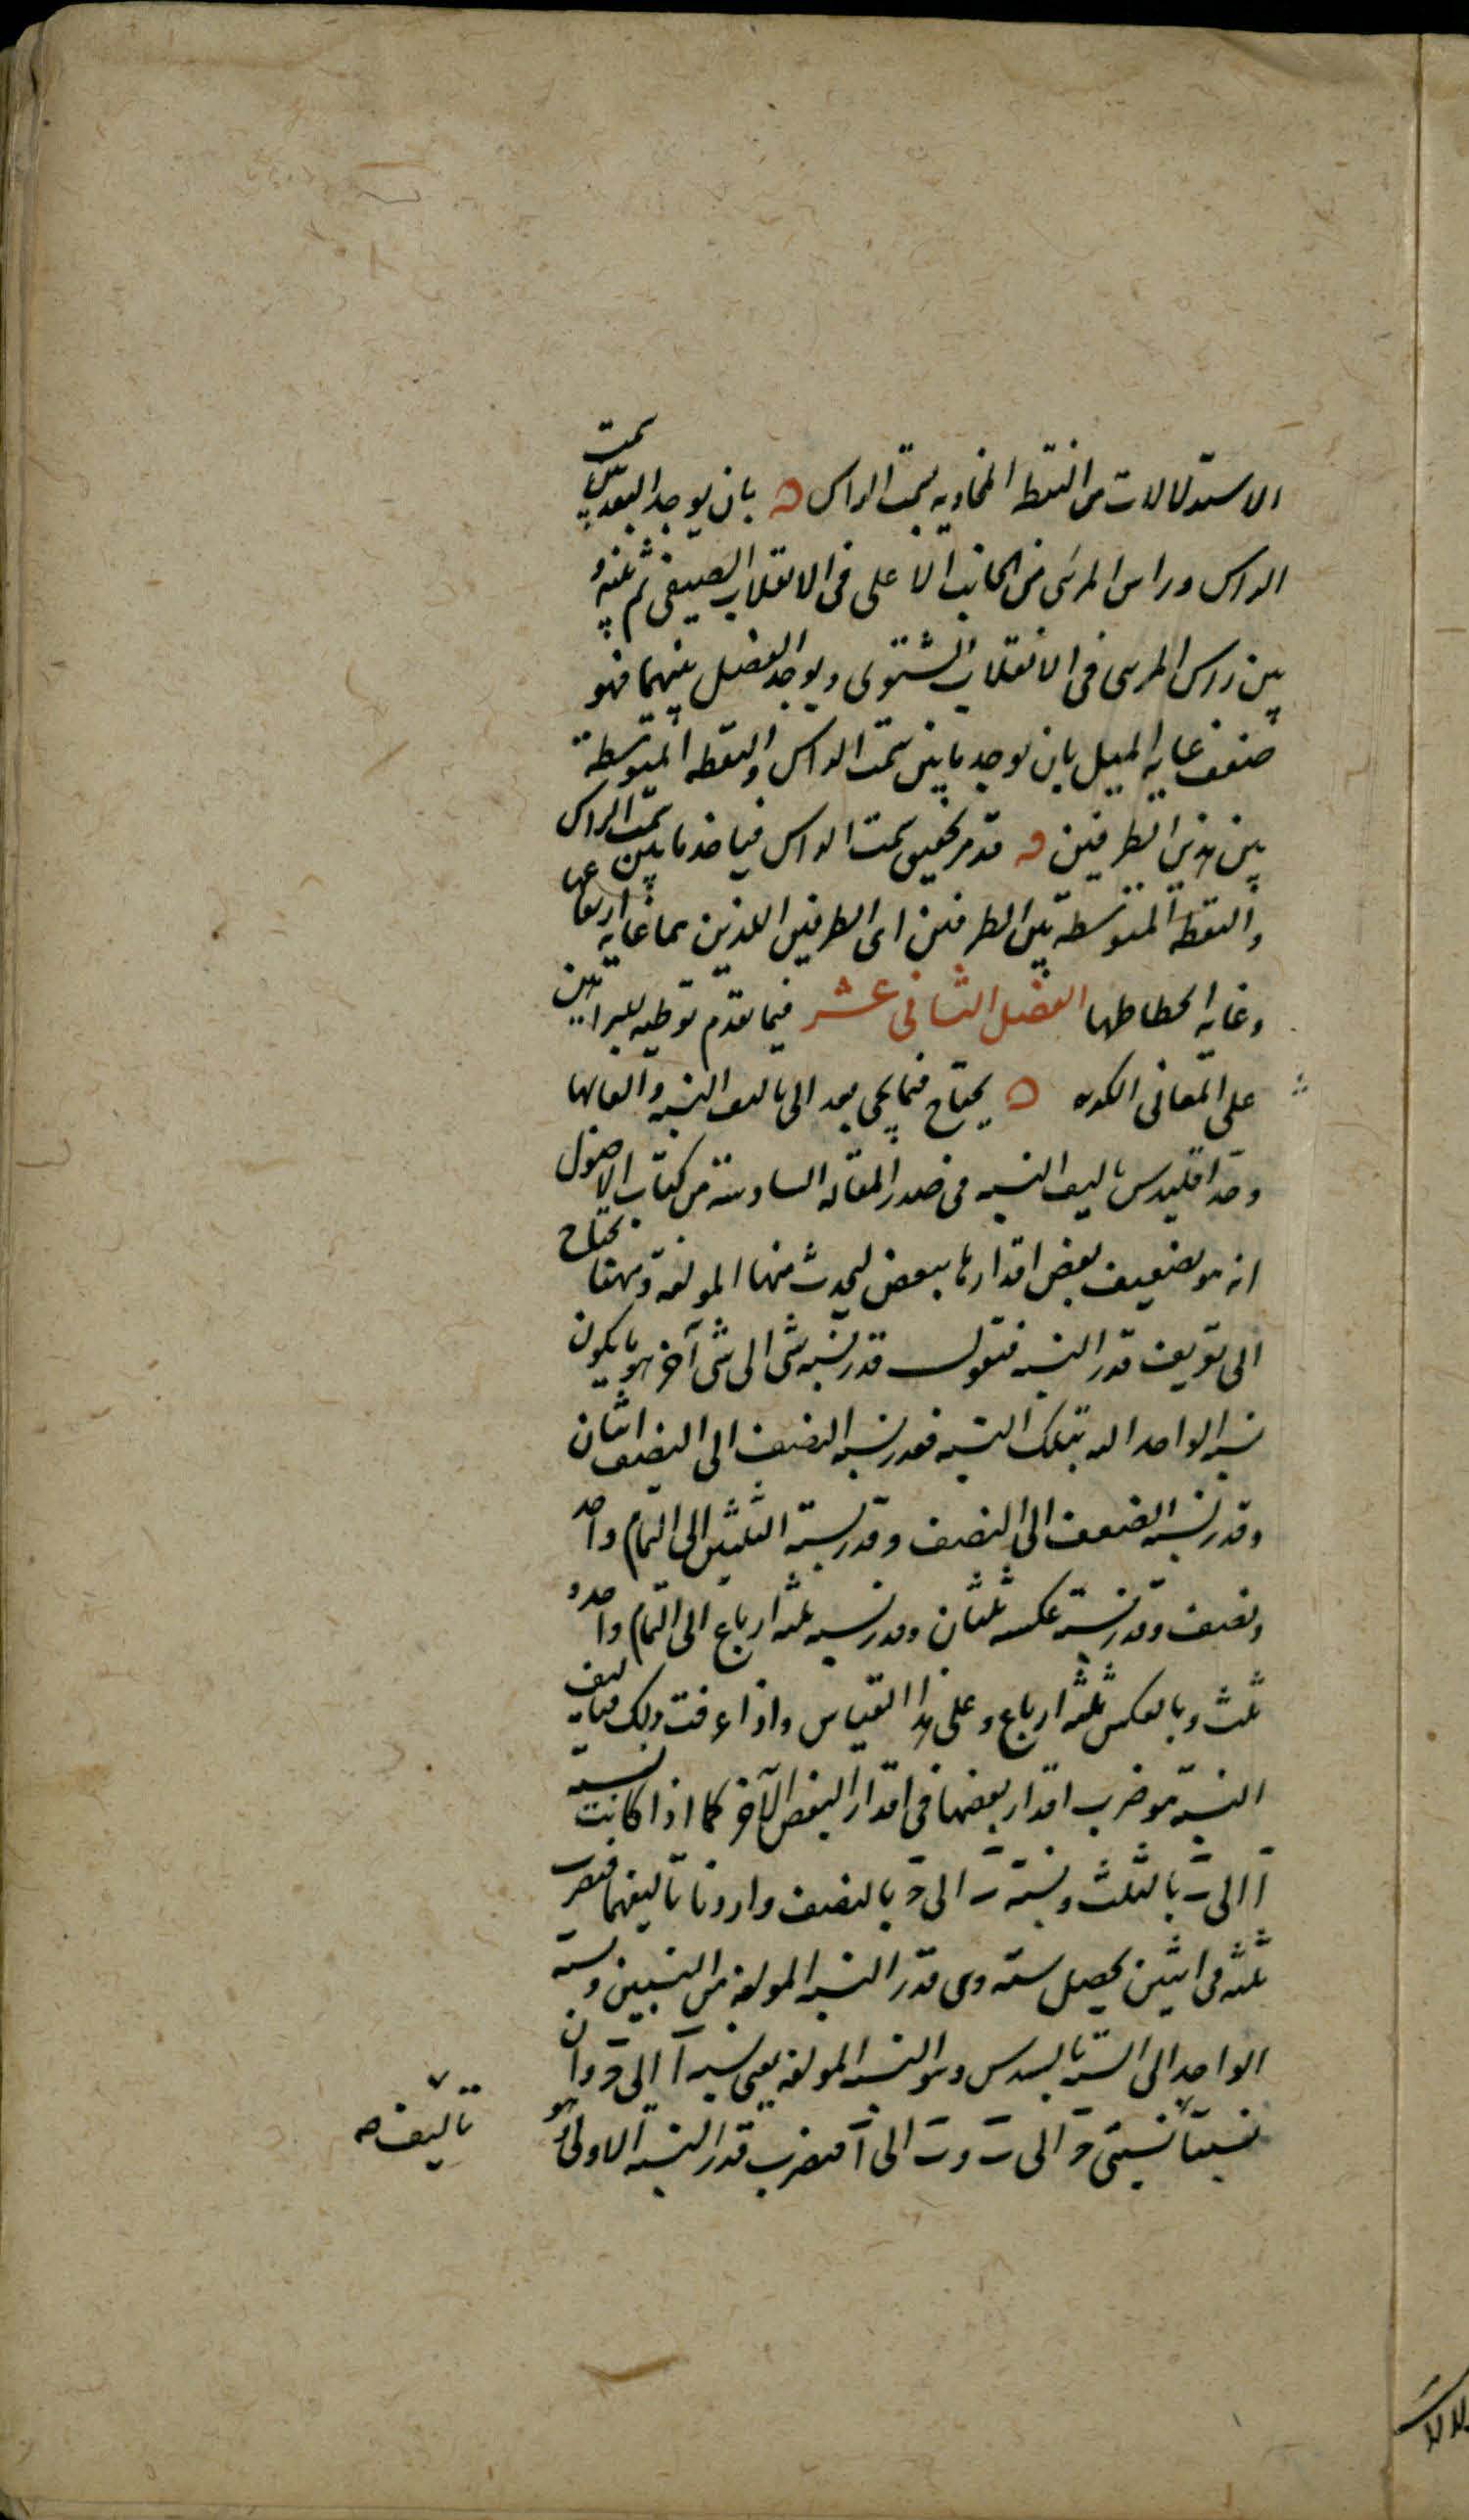 الاستدلالات من النقط المحاذیه لسمت الراس ه بان یوجد البعد بین سمت
الراس و راس المرئی من الجانب الاعلی فی الانقلاب الصیفی ثم بینه و
بین راس المرئی فی الانقلاب الشتوی و یوجد الفضل بینهما فهو
ضعف غایه المیل بان یوجد ما بین سمت الراس و النقطه المتوسطة
بین هذین الطرفین ه قد مر تحقیق سمت الراس فیاخذ ما بین سمت الراس
و النقطة المتوسطه بین الطرفین ای الطرفین اللذین هما غایه ارتفاعها
و غایه انحطاطها الفصل الثانی عشر فیما تقدم توطیه للبراهین
علی المعانی الکریه ه یحتاج فیما یجی بعد الی تالیف النسبه و القابها
و حد اقلیدس تالیف النسبه فی صدر المقاله السادسة من کتاب الاصول
انه هو تضعیف بعض اقدارها ببعض لیحدث منها المولفه و ههنا نحتاج
الی تعریف قدر النسبه فنقول قدر نسبه شی الی شی آخر هو ما یکون
نسبه الواحد الیه بتلک النسبه فقدر نسبه النصف الی الضعف اثنان
و قدر نسبه الضعف الی النصف و قدر نسبة الثلثین الی التمام واحد
و نصف و قدر نسبة عکسه ثلثان و قدر نسبه ثلثه ارباع الی التمام واحد و
ثلث و بالعکس ثلثه ارباع و علی هذا القیاس و اذا عرفت ذلک فتالیف
النسبه هو ضرب اقدار بعضها فی اقدار البعض الآخر کما اذا کانت نسبة
آ الی ب بالثلث و نسبة ب الی ج بالنصف و اردنا تالیفهما فنضرب
ثلثه فی اثنین یحصل سته و هی قدر النسبه المولفه من النسبتین و نسبة
الواحد الی السته بالسدس و هو النسبه المولفه یعنی نسبه آ الی ج و ان
نسبتا نسبتی ج الی ب و ب الی آ فنضرب قدر النسبه الاولی و هو
تالیف صه